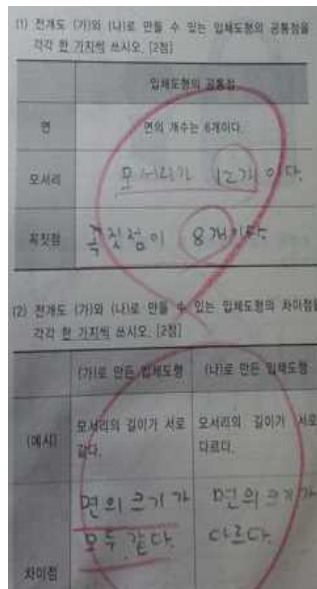 (1) 전개도 (가)와 (나)로 만들 수 있는 입체도형의 공통점을
각각 한 가지씩 쓰시오. [2점]
입체도형의 공통점
면 면의 개수는 6개이다.
모서리 모서리가 12개이다.
꼭짓점 꼭짓점이 8개이다.
(2) 전개도 (가)와 (나)로 만들 수 있는 입체도형의 차이점을
각각 한 가지씩 쓰시오. [2점]
(가)로 만든 입체도형 (나)로 만든 입체도형
(예시) 모서리의 길이가 서로 모서리의 길이가 서로
같다. 다르다.
면의 크기가 면의 크기가
모두 같다. 다르다.
차이점